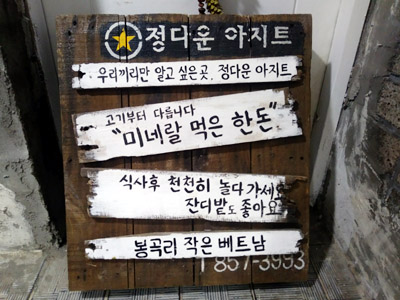 정다운 아지트
우리끼리만 알고 싶은 곳, 정다운 아지트
고기부터 다릅니다
"미네랄 먹은 한돈"
식사후 천천히 놀다가세요
잔디밭도 좋아요
봉곡리 작은 베트남
857-3993